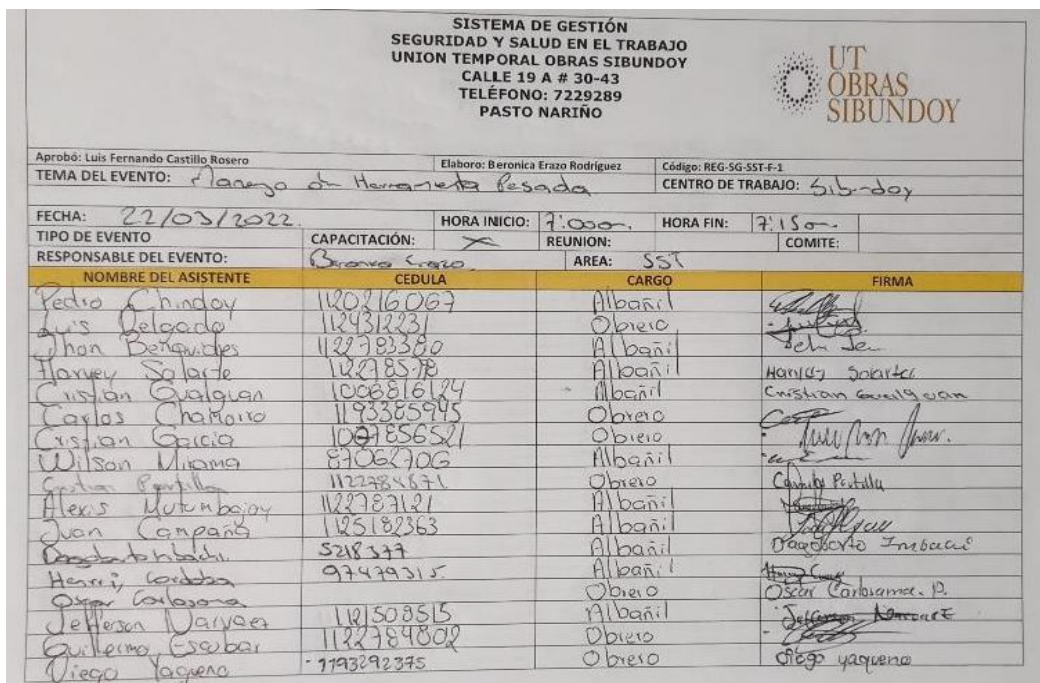 SISTEMA DE GESTIÓN
SEGURIDAD Y SALUD EN EL TRABAJO
UNION TEMPORAL OBRAS SIBUNDOY
CALLE 19 A # 30-43
TELÉFONO: 7229289
PASTO NARIÑO
UT
OBRAS
SIBUNDOY
Aprobó: Luis Fernando Castillo Rosero Elaboro: Beronica Erazo Rodríguez Código: REG-SG-SST-F-1
TEMA DEL EVENTO: Manejo de Herramienta Pesada CENTRO DE TRABAJO: Sibundoy
FECHA: 22/03/2022. HORA INICIO: HORA FIN:
TIPO DE EVENTO CAPACITACIÓN: X REUNION: COMITE:
RESPONSABLE DEL EVENTO: Beronica Erazo AREA: SST
NOMBRE DEL ASISTENTE CEDULA CARGO FIRMA
Pedro Chindoy 1120216067 Albañil
Luis Delgado 112431223 Obrero
Jhon Benavides 1122783380 Albañil
Harvey Solarte Albañil Harvey Solarte
Cristian Gualguan 1006816124 Albañil Cristian Guailguan
Carlos Chamorro 1193385945 Obrero
Cristian Garcia 1007856521 Obrero
Wilson Mirama 87062706 Albañil
Portilla Obrero Portilla
Alexis Mutumbajoy 1122787121 Albañil
Juan Campaña 1125182363 Albañil
5218377 Albañil Dagoberto Inbachi
Henri, Cordoba 97479315. Albañil
Oscar Carlosama Obrero Oscar Carlosama. P.
Jefferson Narvaez 1121508515 Albañil Jefferson Narvaez
Guillermo Escobar 1122784802 Obrero
Diego Yaqueno 1193292375 Obrero diego yaqueno